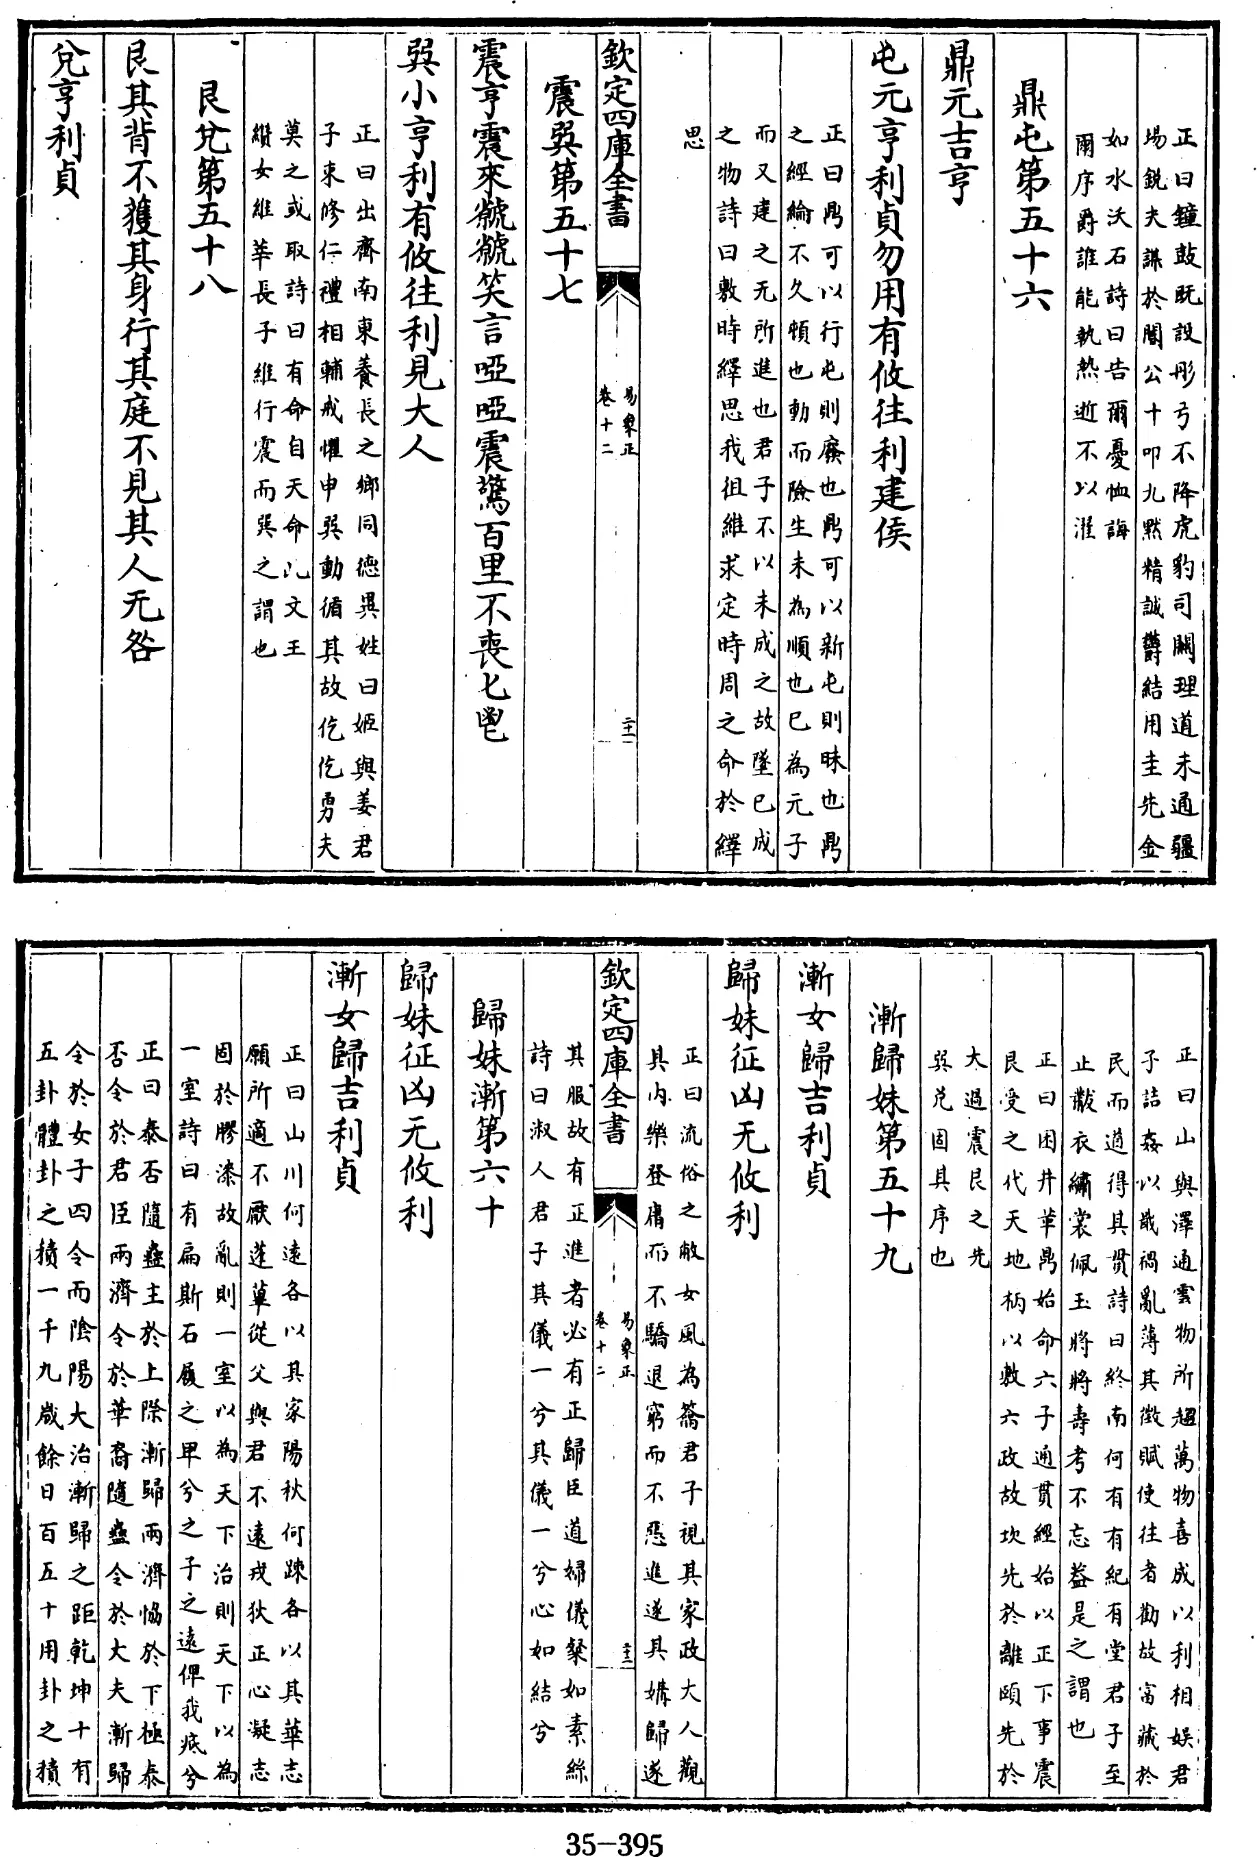 正曰鐘鼓既設彤弓不降虎豹司關理道未通疆
場鋭夫謀於闇公十叩九黙精誠欝結用圭先金
如水沃石詩曰告爾憂恤誨
爾序爵誰能執熱逝不以濯
鼎屯第五十六
鼎元吉亨
屯元亨利貞勿用有攸往利建侯
正曰鼎可以行屯則廢也鼎可以新屯則昧也鼎
之經綸不久頓也動而險生未為順也已為元子
而又建之无所進也君子不以未成之故墜已成
之物詩曰敷時繹思我徂維求定時周之命於繹
思
欽定四庫全書
易象正
卷十二
二十一
震巽第五十七
震亨震來虩虩笑言啞啞震驚百里不喪匕鬯
巽小亨利有攸往利見大人
正曰出齊南東養長之鄉同德異姓曰姬與姜君
子束修仁禮相輔戒懼申巽動循其故仡仡勇夫
莫之或取詩曰有命自天命此文王
纘女維莘長子維行震而巽之謂也
艮兌第五十八
艮其背不獲其身行其庭不見其人无咎
兌亨利貞
正曰山與澤通雲物所趨萬物喜成以利相娯君
子詰姦以戢禍亂薄其徵賦使往者勸故富藏於
民而道得其貫詩曰終南何有有紀有堂君子至
止黻衣繡裳佩玉將將壽考不忘益是之謂也
正曰困井革鼎始命六子通貫經始以正下事震
艮受之代天地柄以敷六政故坎先於離頤先於
大過震艮之先
巽兌固其序也
漸歸妹第五十九
漸女歸吉利貞
歸妹征凶无攸利
正曰流俗之敝女風為簥君子視其家政大人觀
其内樂登庸而不驕退窮而不慝進遂其媾歸遂
欽定四庫全書
易象正
卷十二
二十二
其服故有正進者必有正歸臣道婦儀粲如素絲
詩曰淑人君子其儀一兮其儀一兮心如結兮
歸妹漸第六十
歸妹征凶无攸利
漸女歸吉利貞
正曰山川何遠各以其家陽秋何踈各以其華志
願所適不厭蓬蓽從父與君不遠戎狄正心凝志
固於膠漆故亂則一室以為天下治則天下以為
一室詩曰有扁斯石履之卑兮之子之遠俾我疷兮
正曰泰否隨蠱主於上際漸歸兩濟恊於下極泰
否令於君臣兩濟令於華裔隨蠱令於大夫漸歸
令於女子四令而陰陽大治漸歸之距乾坤十有
五卦體卦之積一千九歲餘日百五十用卦之積
35-395